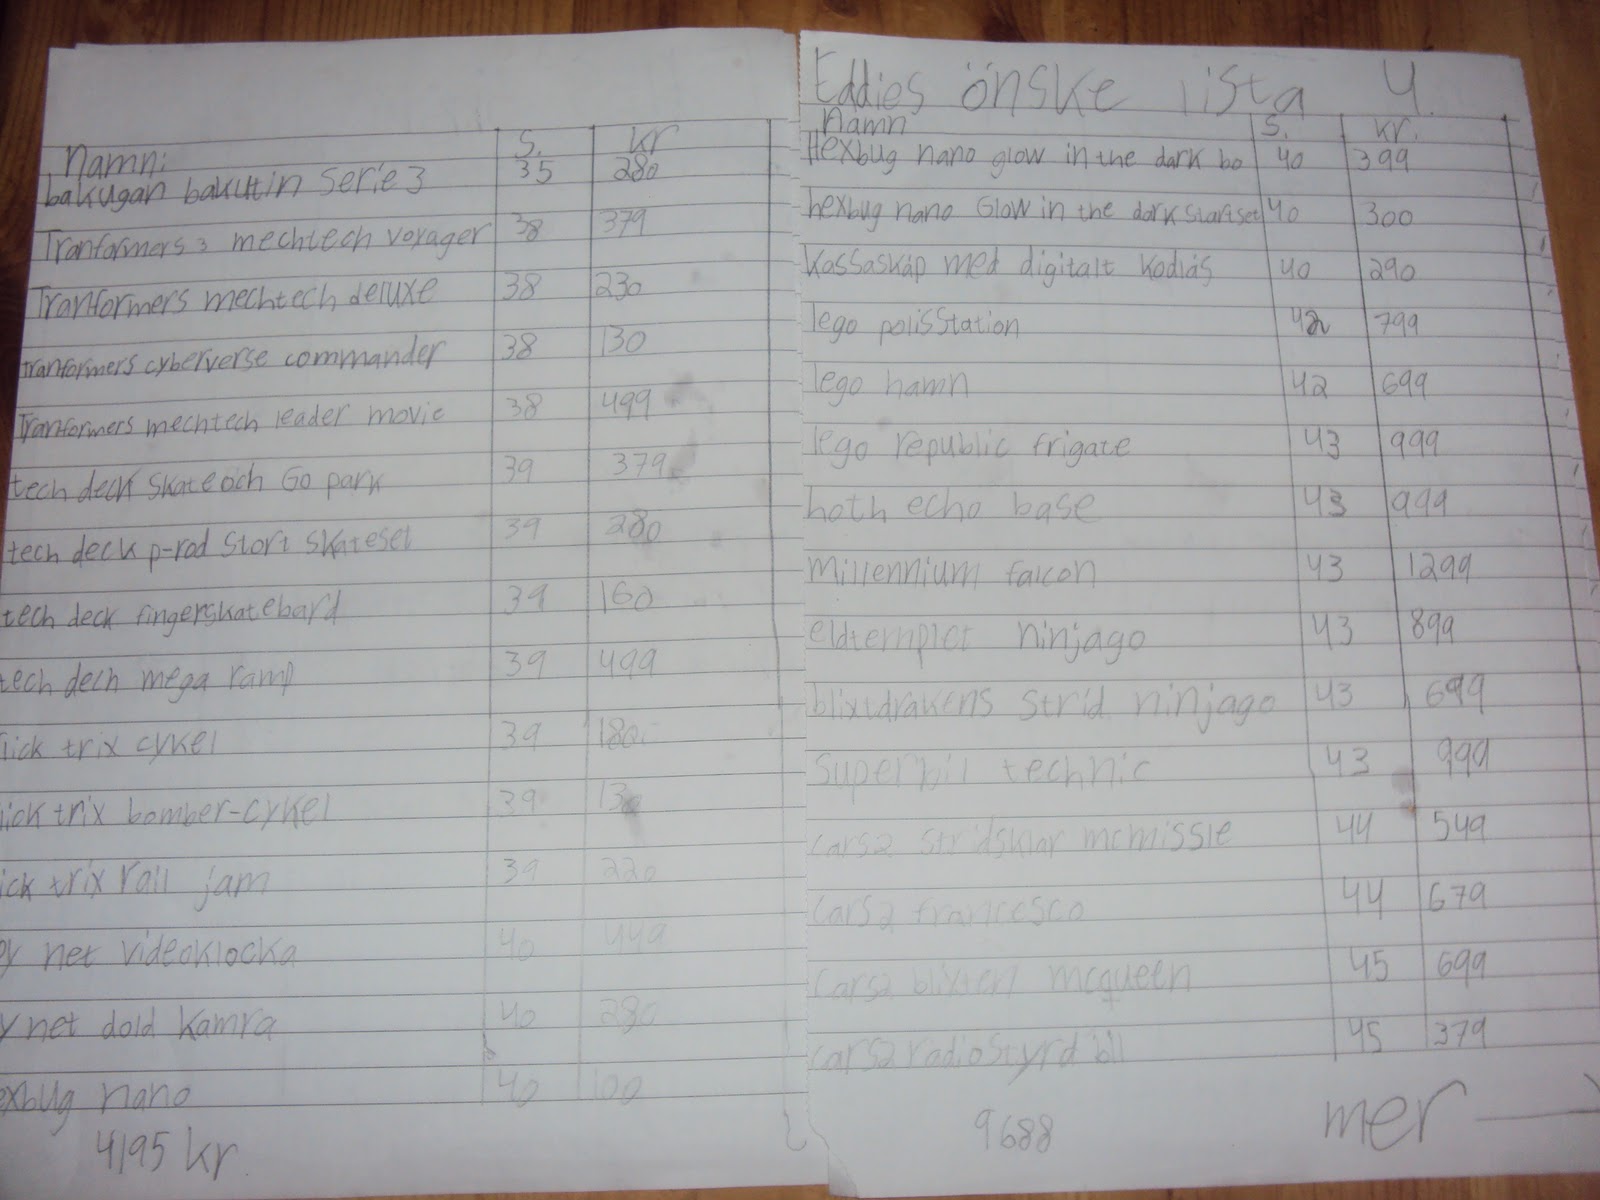 Namn: S. kr
bakugan bakutin serie 3 35 280
Tranformers 3 mechtech voyager 38 379
Tranformers mechtech deluxe 38 230
Tranformers cyberverse commander 38 130
Tranformers mechtech leader movie 38 499
tech deck skate och Go park 39 379
tech deck p-rod stort skateset 39 280
tech deck fingerskatebard 39 160
tech dech mega ramp 39 499
lick trix cykel 39 180:-
lick trix bomber-cykel 39 130
ick trix rail jam 39 220
py net videoklocka 40 449
y net dold kamra 40 280
exbug nano 40 100
4195 kr
Eddies önske lista 4.
Namn S. kr.
Hexbug nano glow in the dark bo 40 399
hexbug nano Glow in the dark startset 40 300
Kassaskåp med digitalt kodlås 40 290
lego polisstation 42 799
lego hamn 42 699
lego republic frigate 43 999
hoth echo base 43 999
Millennium falcon 43 1299
eldtemplet ninjago 43 899
blixtdrakens strid ninjago 43 699
Superbil technic 43 999
Cars2 stridsklar mcmissle 44 549
Cars2 francesco 44 679
Cars2 blixten mcqueen 45 699
Cars2 radiostyrd bil 45 379
9688 mer